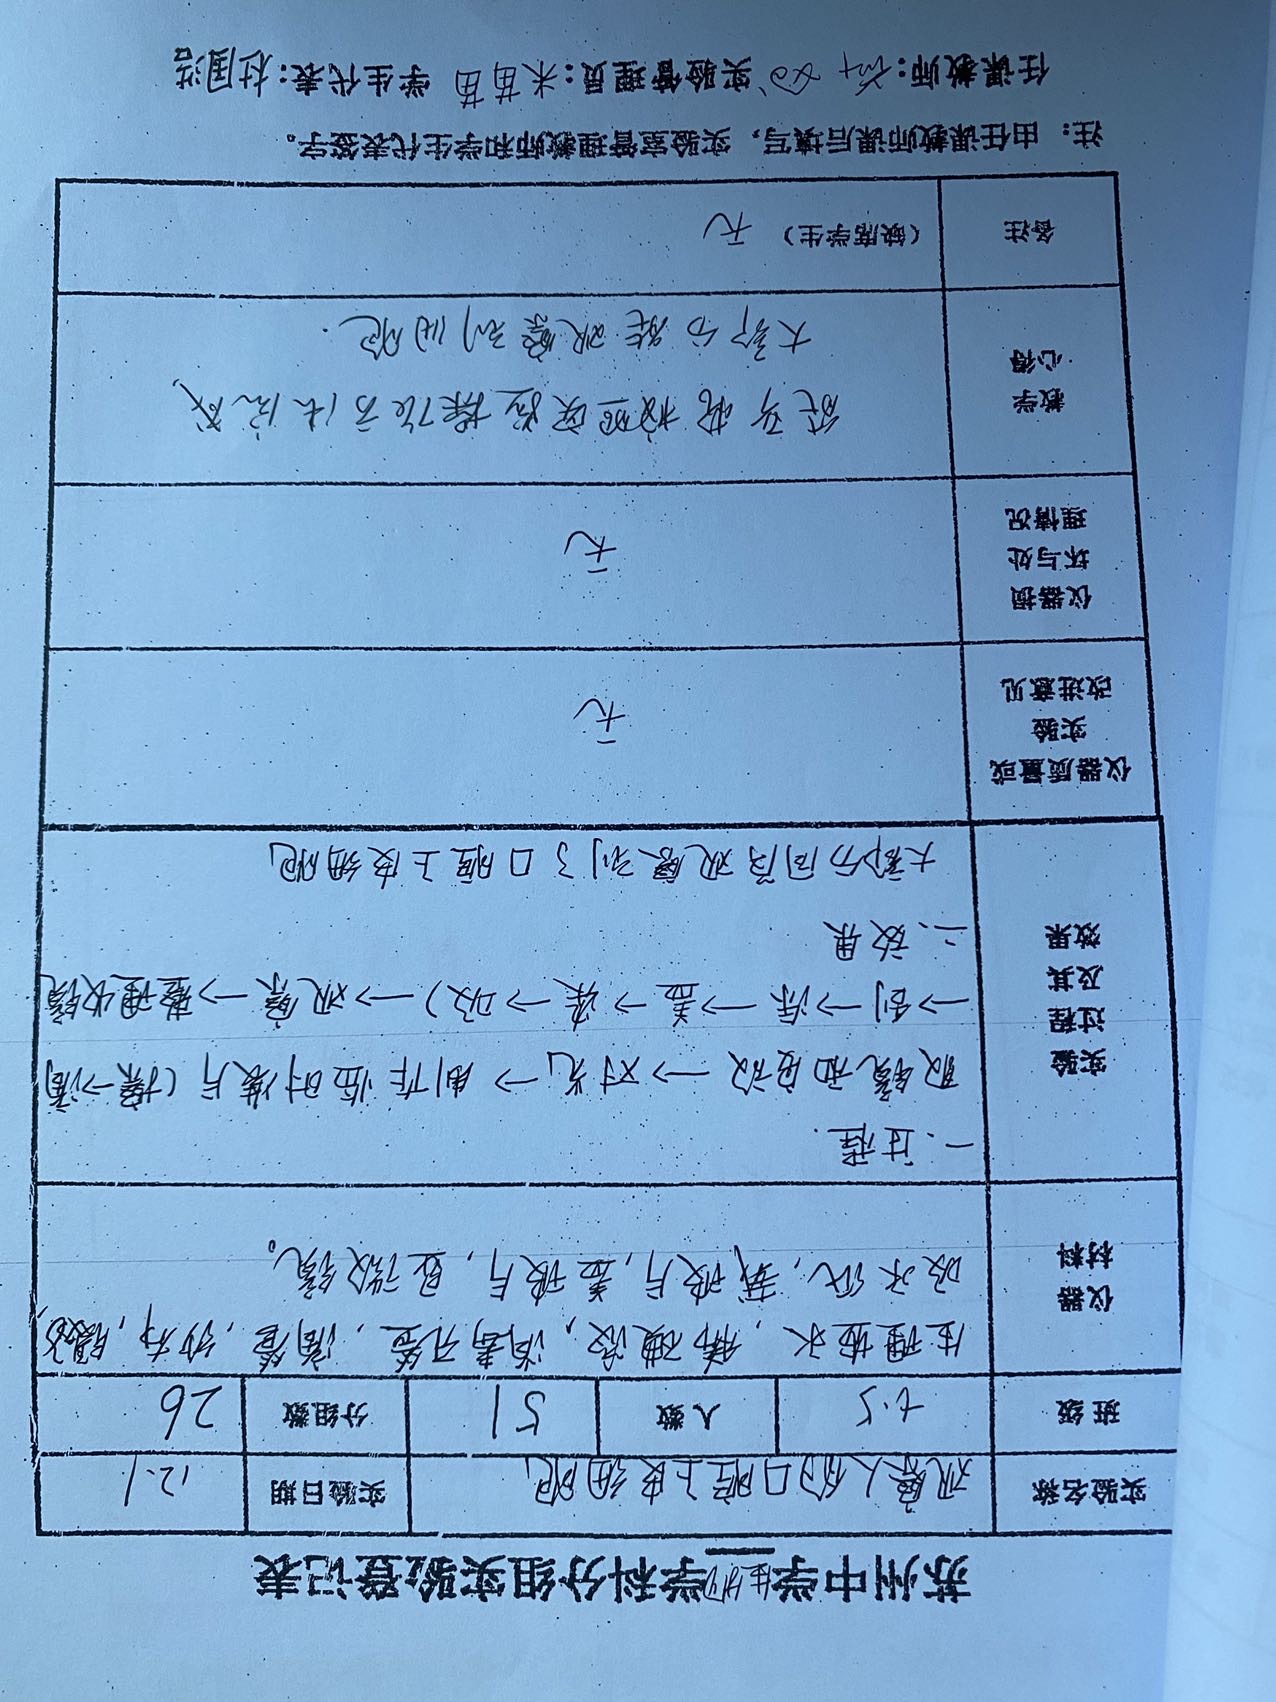 苏州中学生物学科分组实验登记表
实验名称 观察人的口腔上皮细胞 实验日期 12.1
班级 七.5 人数 51 分组数 26
仪器材料 生理盐水,稀碘液,消毒牙签,滴管,纱布,镊子,
吸水纸,载玻片,盖玻片,显微镜。
实验过程及其效果
一.过程.
取镜和安放→对光→制作临时装片(擦→滴
→刮→涂→盖→染→吸)→观察→整理收镜
二、效果
大部分同学观察到了口腔上皮细胞
仪器质量或实验改进意见 无
仪器损坏与处理情况 无
教学心得 能够按照实验操作方法完成
大部分能观察到细胞.
备注 (缺席学生) 无
注:由任课教师课后填写,实验室管理教师和学生代表签字。
任课教师: 实验管理员:米苗苗 学生代表:杜国浩